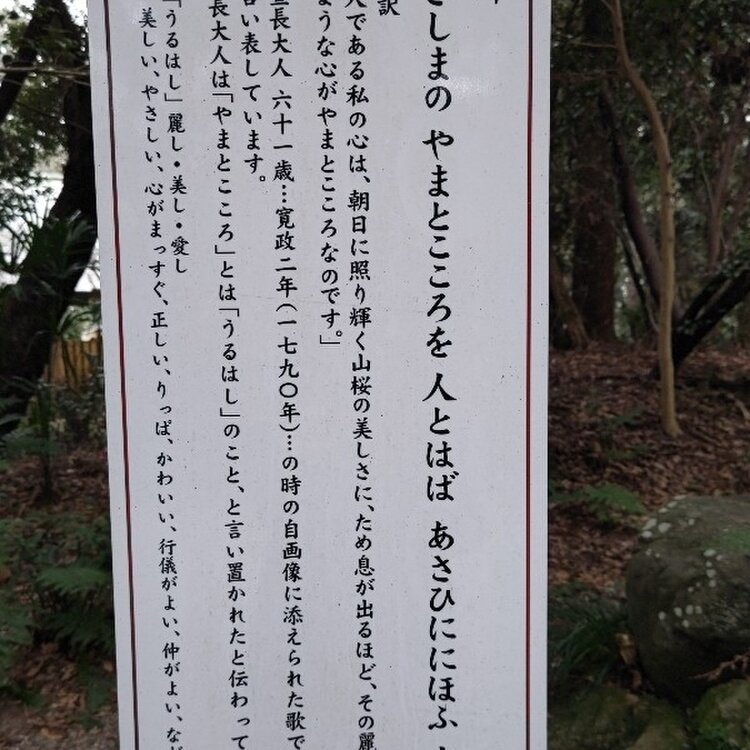 きしまの やまとこころを 人とはば あさひににほふ
訳
人である私の心は、朝日に照り輝く山桜の美しさに、ため息が出るほど、その麗
ような心がやまとこころなのです。」
長大人 六十一歳…寛政二年(一七九〇年)…の時の自画像に添えられた歌で
言い表しています。
長大人は「やまとこころ」とは「うるはし」のこと、と言い置かれたと伝わって
「うるはし」麗し・美し・愛し
美しい、やさしい、心がまっすぐ、正しい、りっぱ、かわいい、行儀がよい、仲がよい、など